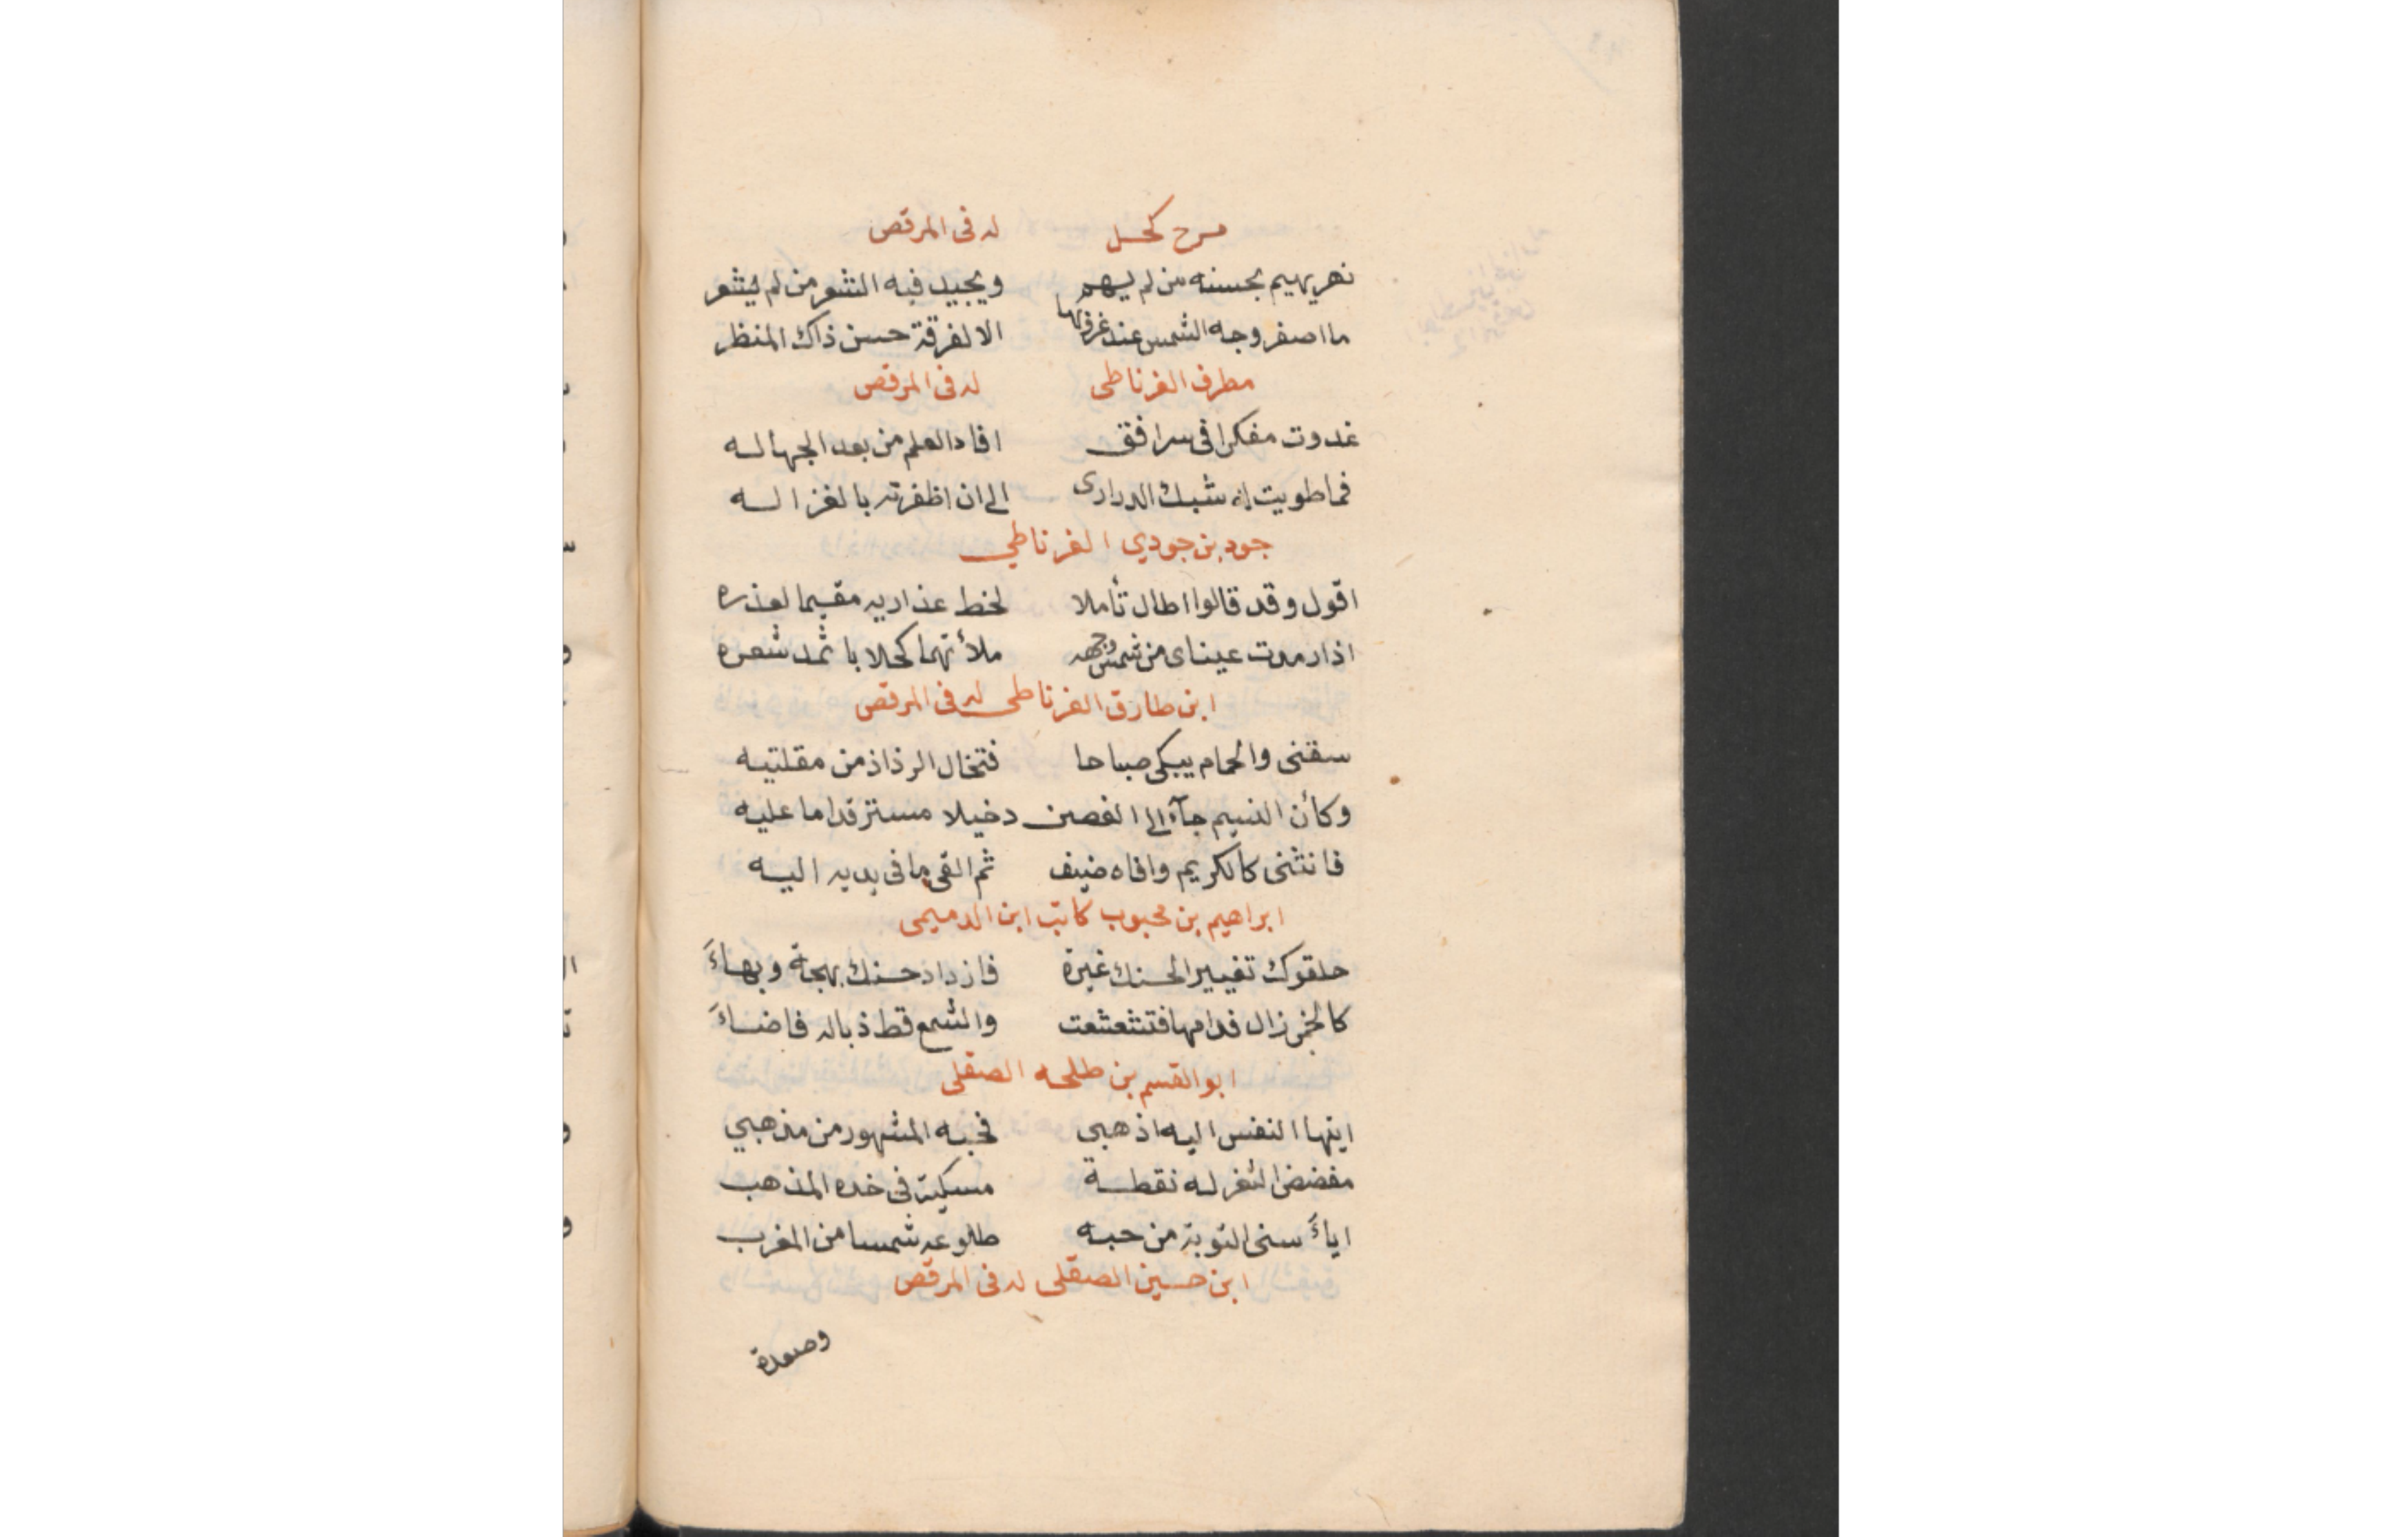 مرح كحل له فى المرقص
نهر يهيم بحسنه من لم يهم ويجيد فيه الشعر من لم يشعر
ما اصفر وجه الشمس عند غروبها الا لفرقة حسن ذاك المنظر
مطرف الغرناطى له فى المرقص
غدوت مفكرا فى سر افق افاد العلم من بعد الجهاله
فما طويت له شبك الدرارى الى ان اظفرته بالغزاله
جود بن جودي الغرناطي
اقول وقد قالوا اطال تأملا لخط عذاريه مقيما لعذره
اذا رمدت عيناى من شمس وجهه ملأتهما كحلا باثمد شعره
ابن طارق الغرناطى له فى المرقص
سقنى والحمام يبكى صباحا فتخال الرذاذ من مقلتيه
وكأن النسيم جآء الى الغصن دخيلا مسترقدا ما عليه
فانثنى كالكريم وافاه ضيف ثم القى ما فى يديه اليه
ابراهيم بن محبوب كاتب ابن الدميمى
حلقوك تغييرا لحسنك غيرة فازداد حسنك بهجة وبهاءَ
كالخمر زال فدامها فتشعشعت والشمع قط ذباله فاضاءَ
ابو القسم بن طلحه الصقلى
ايتها النفس اليه اذهبي فحبه المشهور من مذهبي
مفضض الثغر له نقطة مسكية فى خده المذهب
اياءَسنى التوبة من حبه طلوعه شمسا من المغرب
ابن حسين الصقلى له فى المرقص
وصعدة